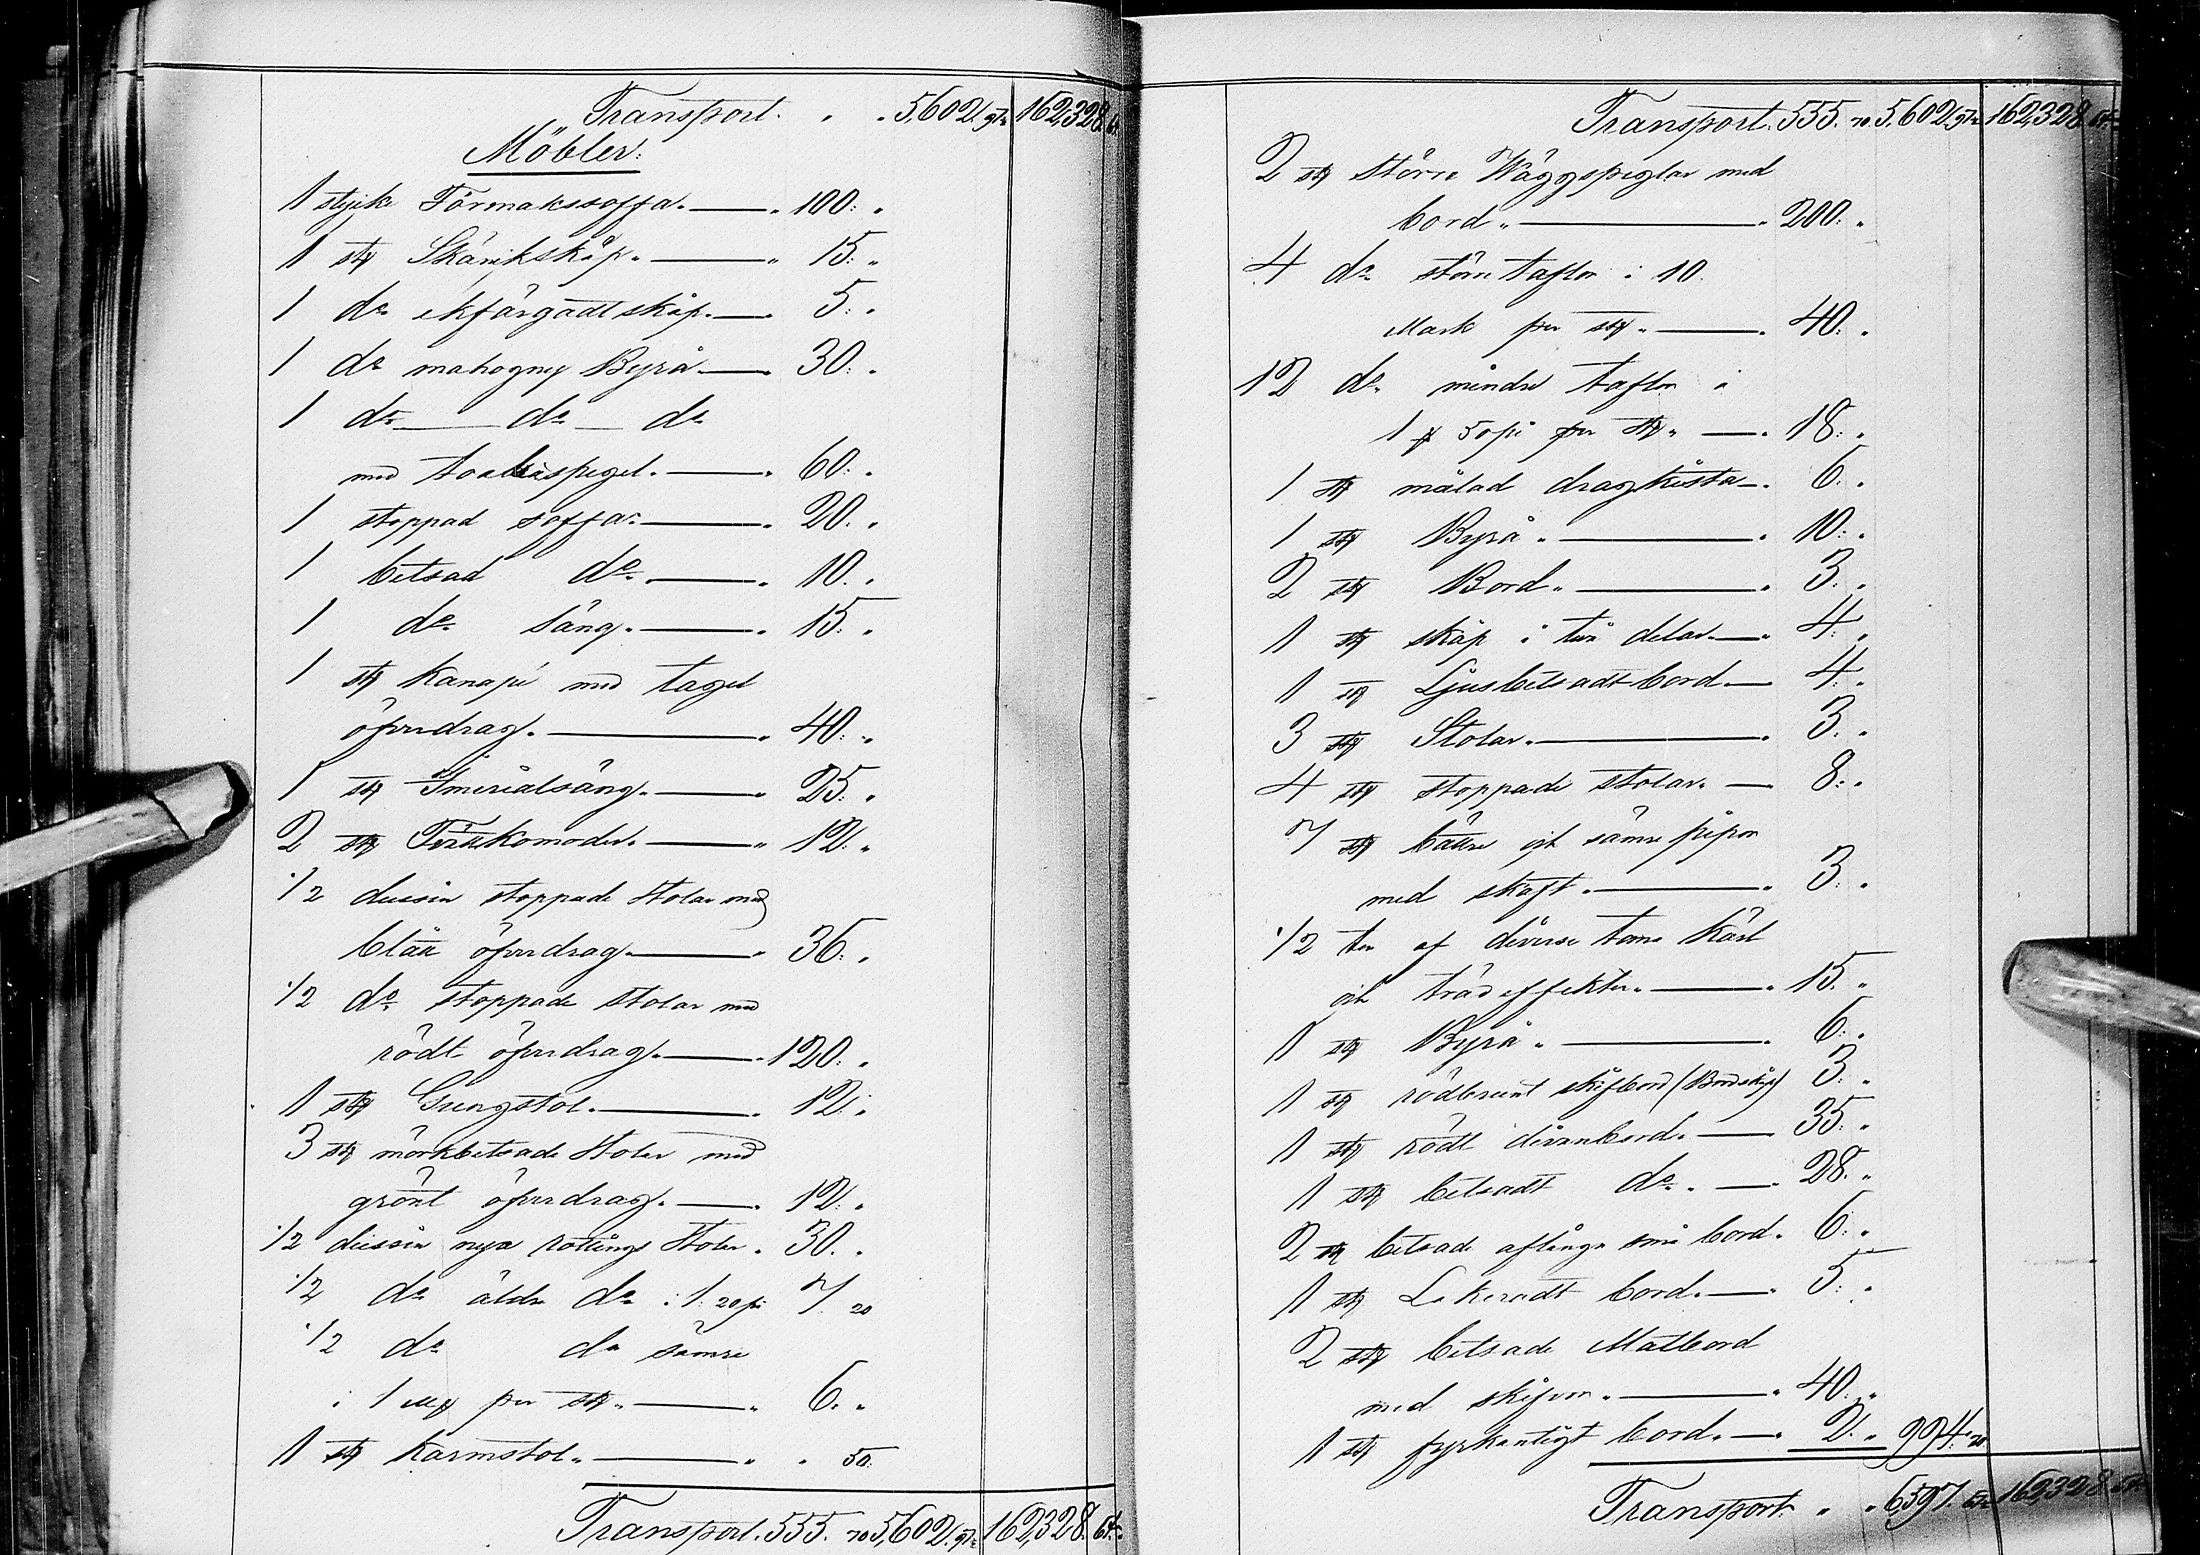 Transport. „ „ 5,602. 97. 162,328. 64.
Möbler:
1 stycke Förmakssoffa. — „ 100: „
1 st Skänkskåp. — „ 15: „
1 do ekfärgadt skåp. — „ 5: „
1 do mahogny Byrå — „ 30: „
1 do — do — do
med toalettspegel. — „ 60: „
1 stoppad soffa. — „ 20: „
1 betsad do — „ 10. „
1 do säng. — „ 15: „
1 st Kanapé med tagel
öfverdrag. — „ 40: „
1 st Imerialsäng. — „ 25: „
2 st Förskomoder. — „ 12: „
1/2 dussin stoppade Stolar med
blått öfverdrag. — „ 36: „
1/2 do stoppade stolar med
rödt öfverdrag. — „ 120: „
1 st Gungstol. — „ 12: „
3 st mörkbetsade Stolar med
grönt öfverdrag. — „ 12: „
1/2 dussin nya rottings Stolar „ 30. „
1/2 do äldre do i 1: 20 pi 7. 20
1/2 do do sämre
i 1 mk per st. — „ 6. „
1 st Karmstol. — „ „ 50.
Transport. 555. 70 5,602. 97. 162,328. 64.
Transport. 555. 70 5,602. 97. 162,328. 64.
2 st större Wäggspeglar med
bord. — „ 200: „
4 do större taflor i 10
Mark per st. — „ 40: „
12 do mindre taflor i
1 mk 50 pi per st. — „ 18: „
1 st målad dragkista — „ 6. „
1 st Byrå. — „ 10: „
2 st Bord. — „ 3: „
1 st skåp i två delar — „ 4: „
1 st Ljusbetsadt bord — „ 4: „
3 st Stolar. — „ 3: „
4 st stoppade stolar. — „ 8: „
7 st bättre och sämre pipor
med skaft. — „ 3: „
1/2 af diverse toma Kärl
och trädeffekter. — „ 15. „
1 st Byrå. — „ 6: „
1 st rödbrunt skifbord (Bordskåp) 3: „
1 st rödt divanbord. — „ 35: „
1 st betsadt do. — „ 28. „
2 st betsade aflånga små bord. „ 6: „
1 st Lakeradt bord. — „ 5: „
2 st betsade Matbord
med skifvor. — „ 40. „
1 st fyrkantigt bord. — „ 2. „ 994. 70
Transport. „ „ 6,597. 162,328. 64.